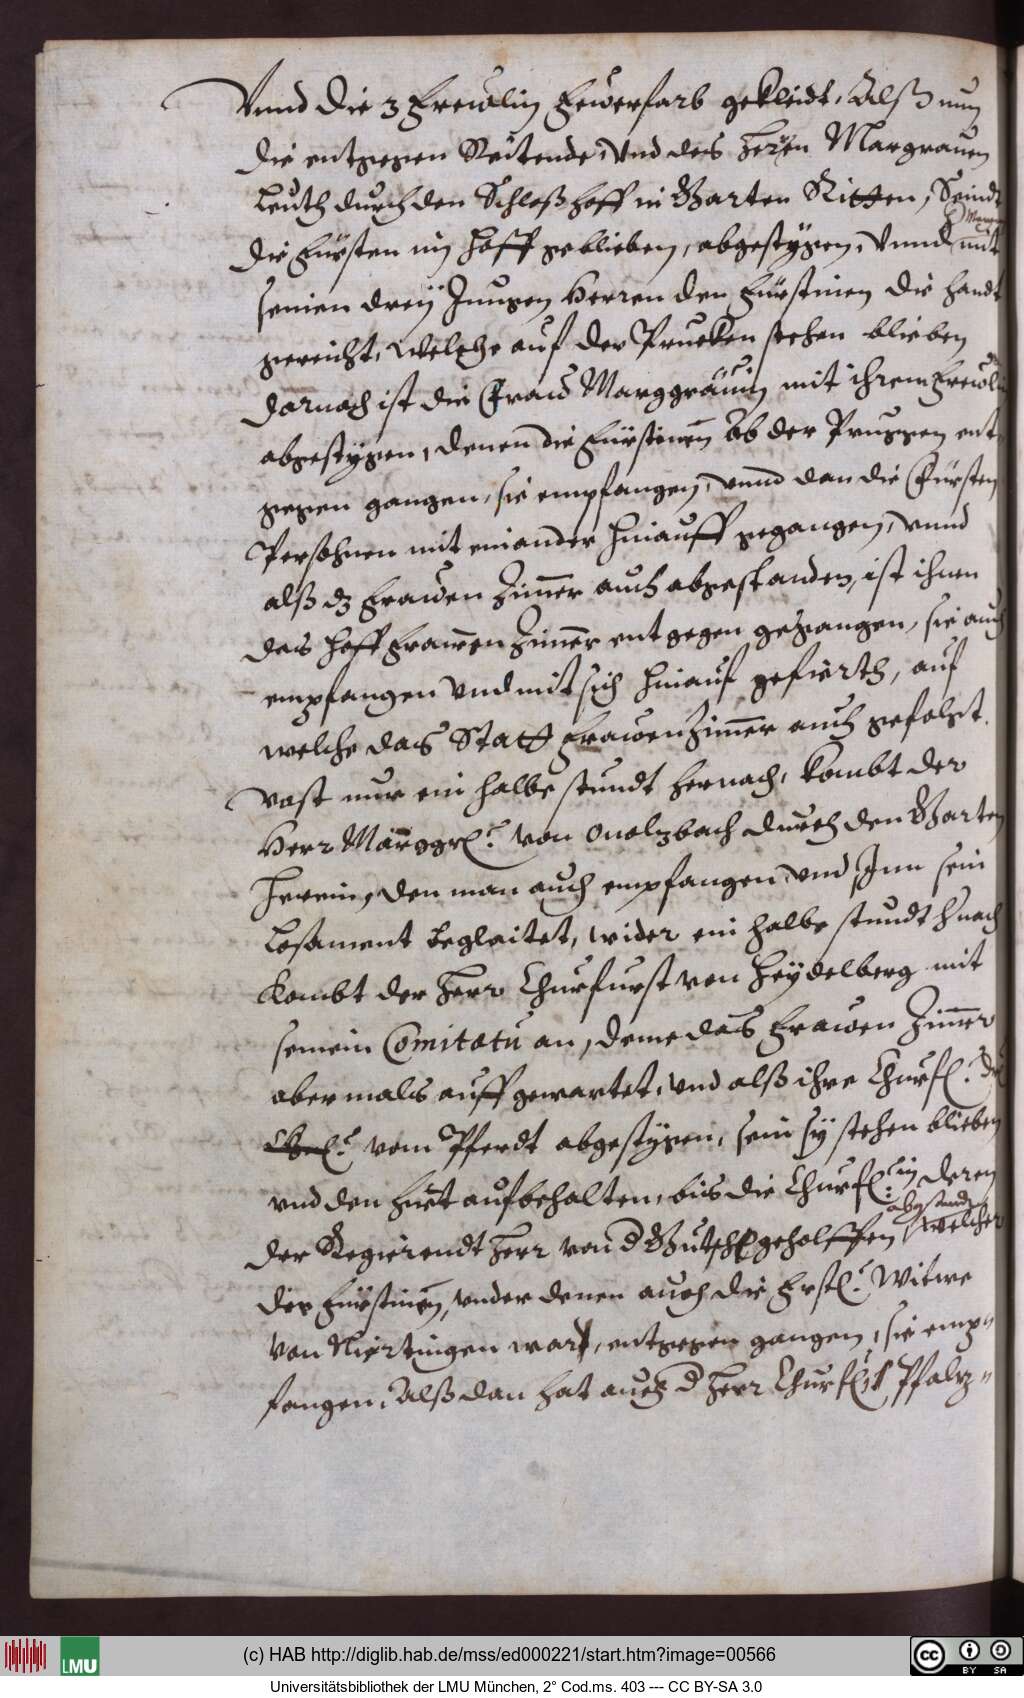 Vnnd die 3 Frewlin Fewerfarb gekleidt, Alß nun
die entgegen Reitende, Vnd des Herrn Marggrauen
Leuth durch den Schloßhoff in Garten Ritten, Seindt
die Fürsten im Hoff geblieben, abgestygen, Vnnd mit
seinen dreÿ Jungen Herren den Fürstinen die handt
gereicht, Welche auf der Prucken stehen blieben
Darnach ist die Fraw Marggräuin mit ihrem Frewlin
abgestygen, denen die Fürstinen ob der Pruggen ent
gegen gangen, sie empfangen, vnnd dan die Fürsten
Persohnen mit einander hinauff gegangen, vnnd
alß dz Frawen Zimer auch abgestanden, ist ihnen
das Hoff Frawen Zimer entgegen gegangen, sie auch
empfangen Vnd mit sich hinauf gefüerth, auf
welche das Statt Frawen Zimer auch gefolgt.
Vast nur ein halbe stundt hernach, kombt der
Herr Marggr: von Onolzbach durch den Garten
herein, den man auch empfangen Vnd Jnn sein
Losament beglaitet, wider ein halbe stundt hnach
kombt der Herr Churfurst von Heÿdelberg mit
seinem Comitatu an, deme das Frawen Zimer
abermals auffgewartet, vnd alß ihre Churf:
vom Pferdt abgestygen, sein sÿ stehen blieben
vnd den Huet aufbehalten, bis die Churf:in deren
abgstanden
der Regierendt Herr von d Gutsch geholffen welcher
die Fürstinen, vnder denen auch die Fürstl: Witwe
von Niertingen war, entgegen gangen, sie emp=
fangen, Alß dan hat auch d Herr Churf: Pfalz=
(c) HAB http://diglib.hab.de/mss/ed000221/start.htm?image=00566
LMU
cc BY SA
Universitätsbibliothek der LMU München, 2° Cod.ms. 403 --- CC BY-SA 3.0